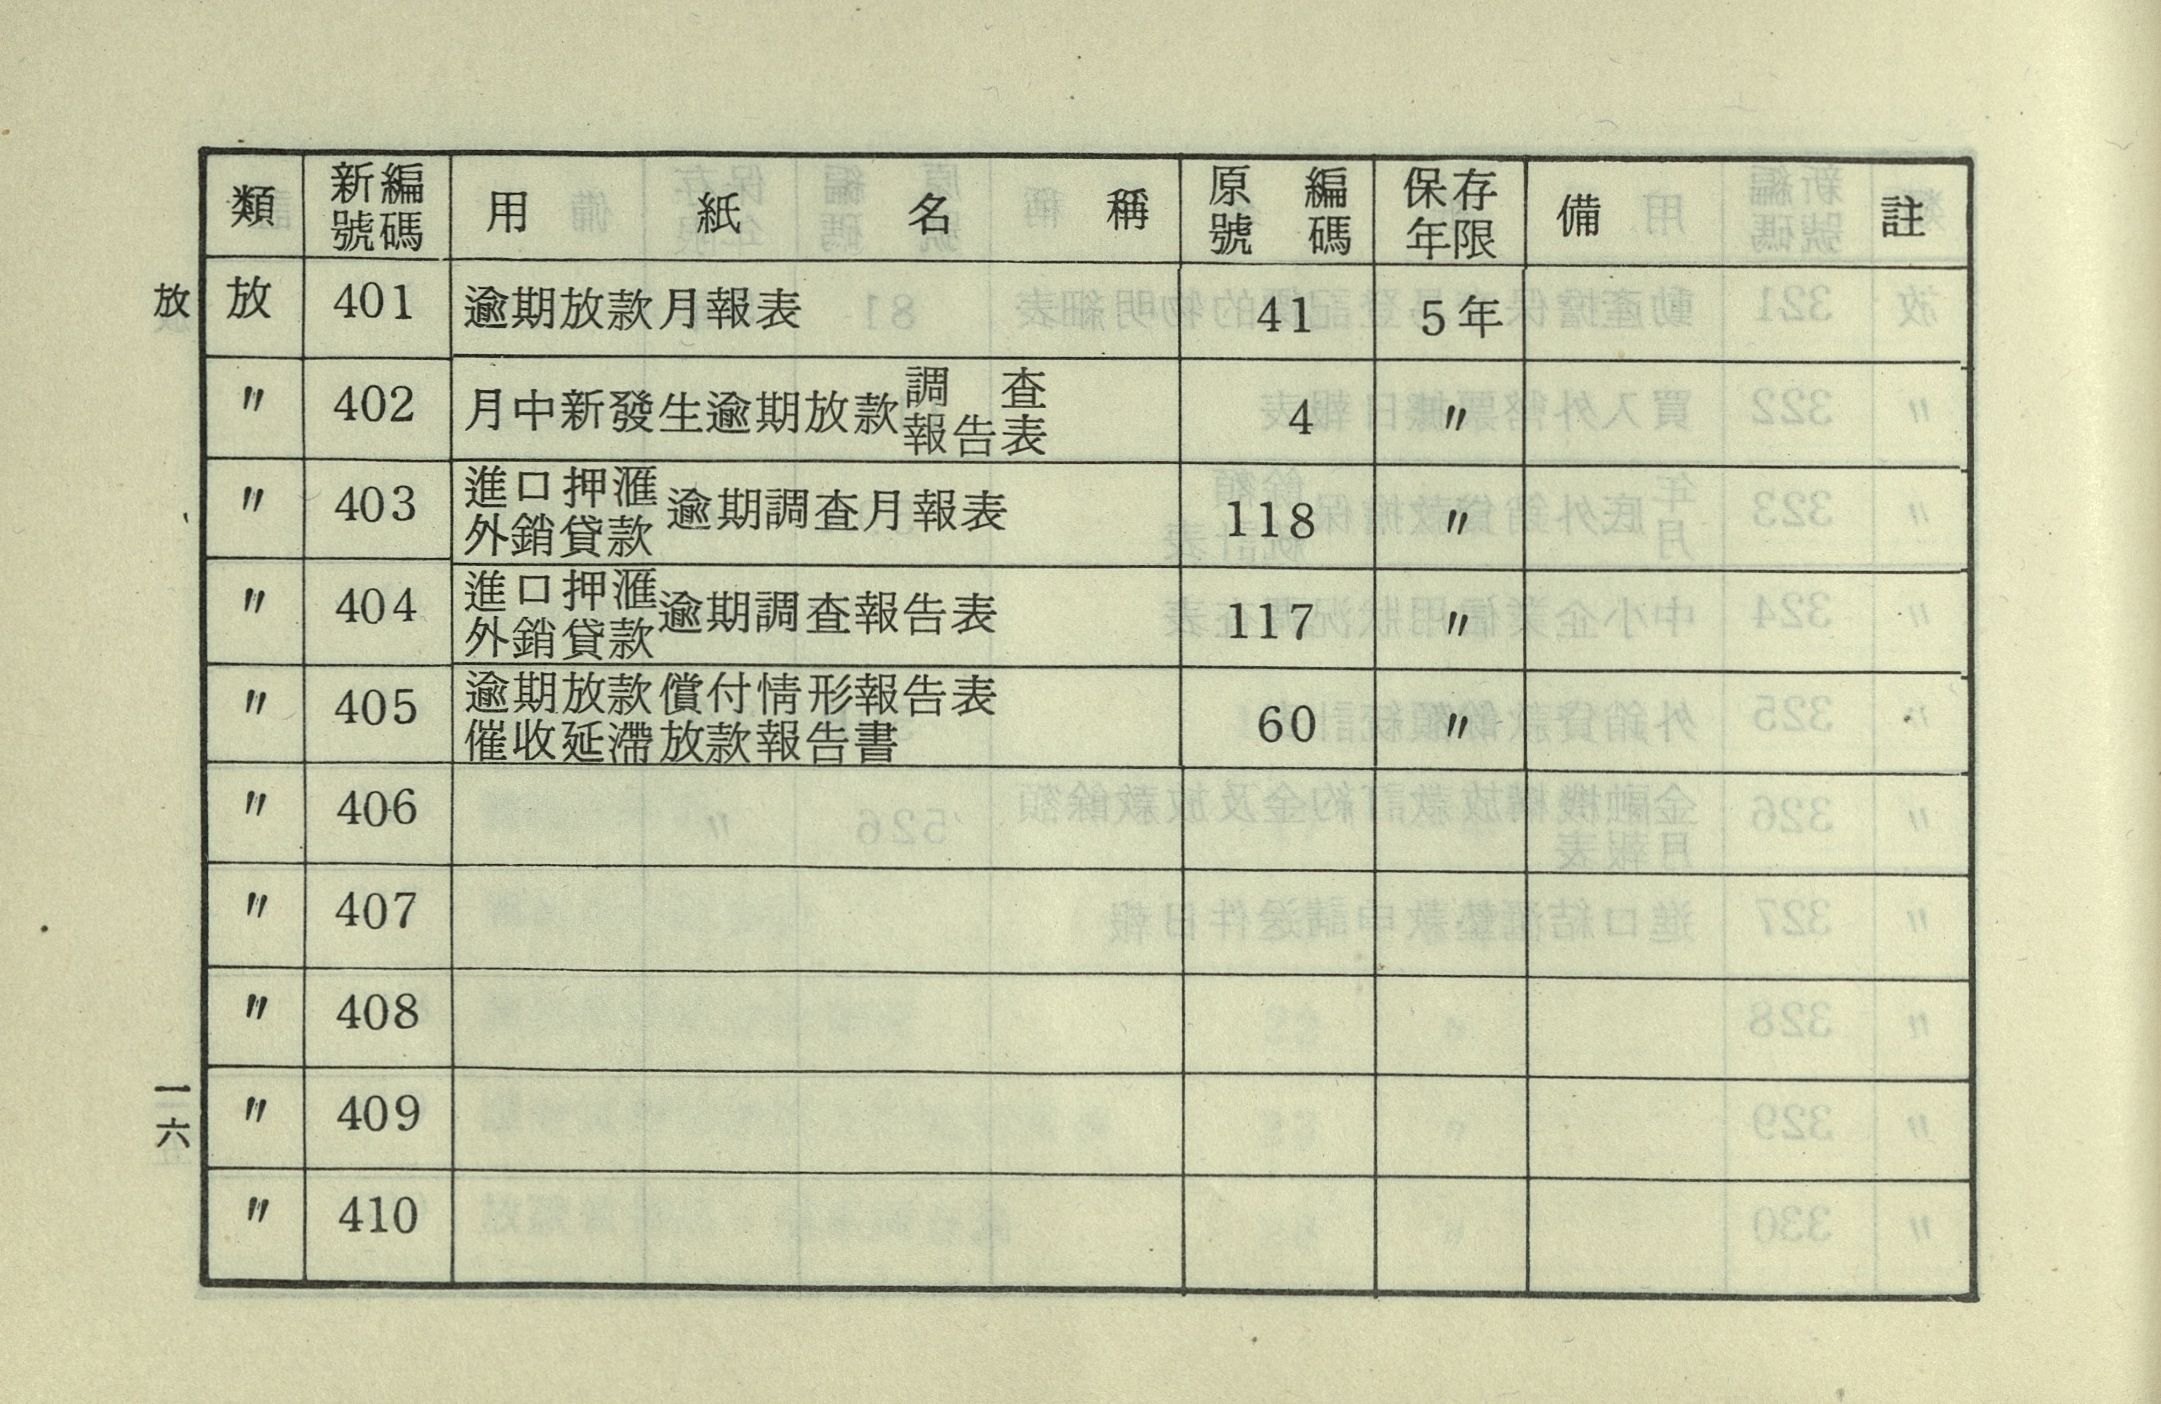 類 新編號碼 用紙名稱 原編號碼 保存年限 備註
放 401 逾期放款月報表 41 5年
〃 402 月中新發生逾期放款調查報告表 4 〃
〃 403 進口押滙外銷貸款逾期調查月報表 118 〃
〃 404 進口押滙外銷貸款逾期調查報告表 117 〃
〃 405 逾期放款償付情形報告表
催收延滯放款報告書 60 〃
〃 406
〃 407
〃 408
〃 409
〃 410
放
一六